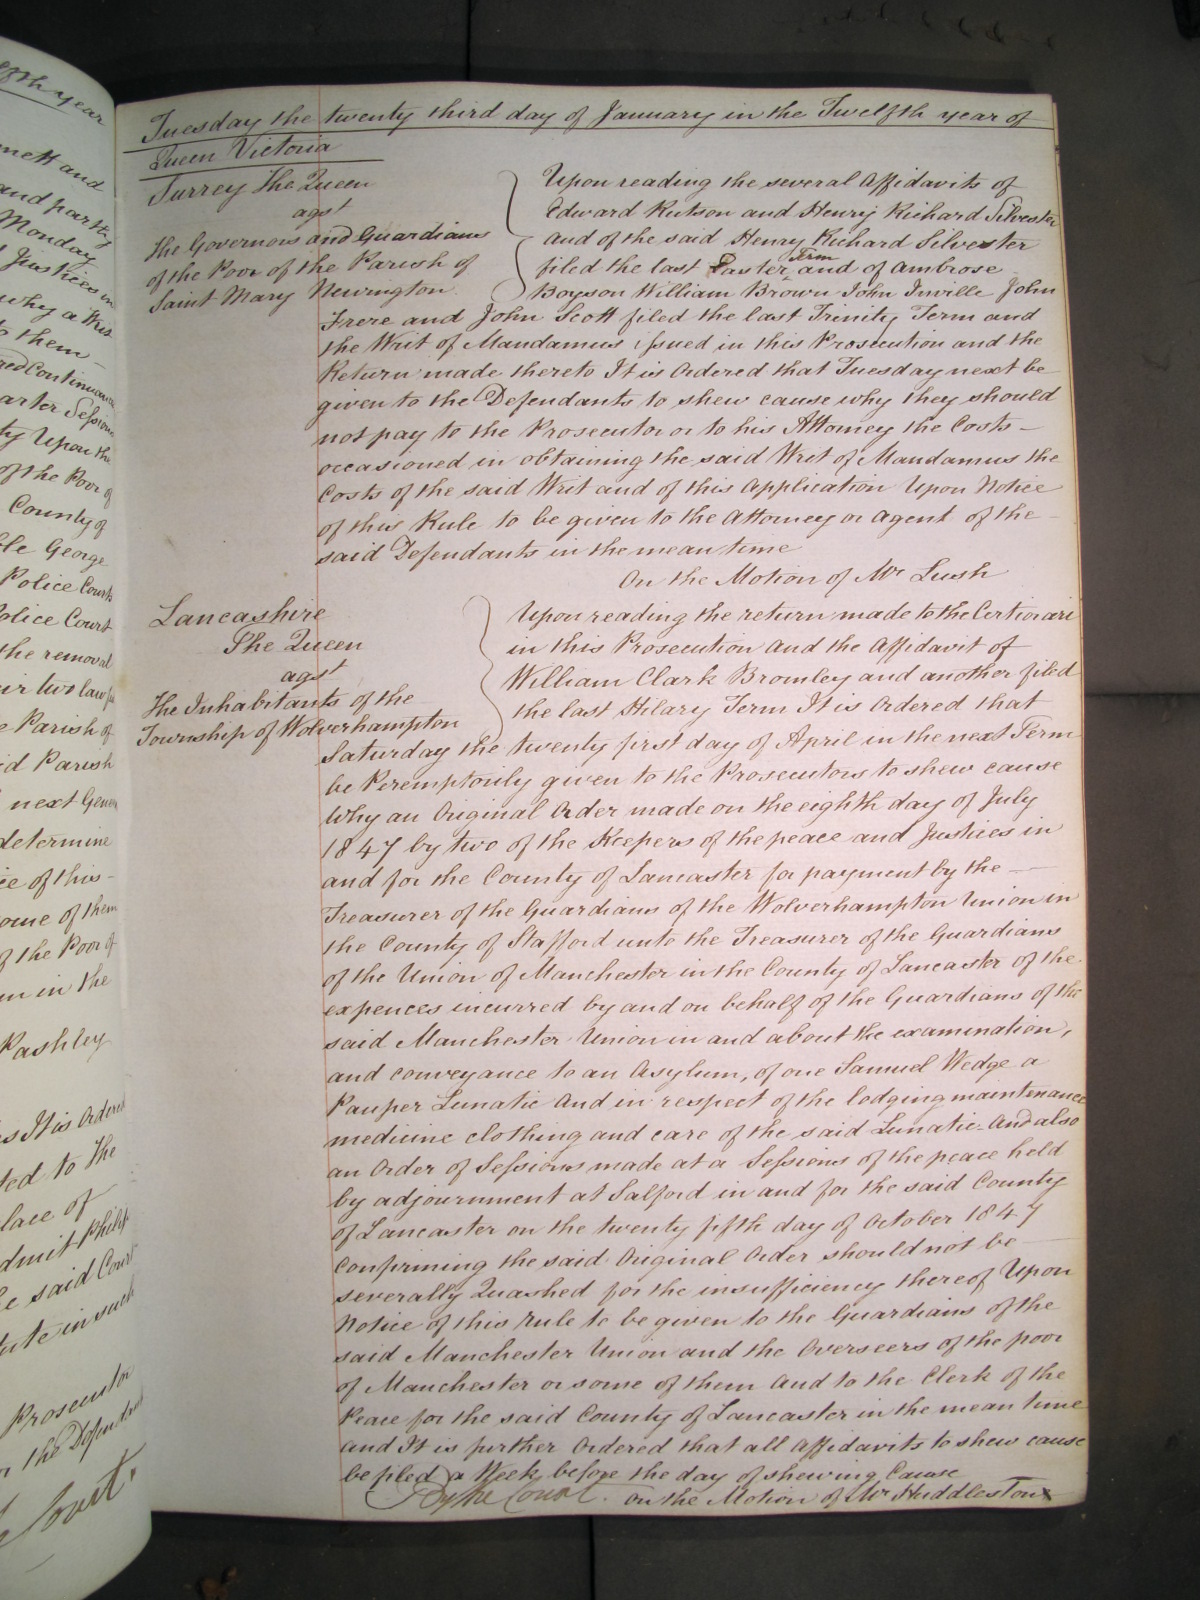 Tuesday the twenty third day of January in the Twelfth year of
Queen Victoria
Surrey The Queen
agst
The Governors and Guardians
of the Poor of the Parish of
Saint Mary Newington
Upon reading the several Affidavits of
Edward Rutson and Henry Richard Silvester
and of the said Henry Richard Silvester
filed the last Easter Term and of Ambrose
Boyson William Brown John Inville John
Frere and John Scott filed the last Trinity Term and
the Writ of Mandamus issued in this Prosecution and the
Return made thereto It is Ordered that Tuesday next be
given to the Defendants to shew cause why they should
not pay to the Prosecutor or to his Attorney the Costs
occasioned in obtaining the said Writ of Mandamus the
Costs of the said Writ and of this Application Upon Notice
of this Rule to be given to the Attorney or Agent of the
said Defendants in the mean time
On the Motion of Mr Lush
Lancashire
The Queen
agst
The Inhabitants of the
Township of Wolverhampton
Upon reading the return made to the Certiorari
in this Prosecution and the Affidavit of
William Clark Bromley and another filed
the last Hilary Term It is Ordered that
Saturday the twenty first day of April in the next Term
be Peremptorily given to the Prosecutors to shew cause
Why an Original Order made on the eighth day of July
1847 by two of the Keepers of the peace and Justices in
and for the County of Lancaster for payment by the
Treasurer of the Guardians of the Wolverhampton Union in
the County of Stafford unto the Treasurer of the Guardians
of the Union of Manchester in the County of Lancaster of the
expences incurred by and on behalf of the Guardians of the
said Manchester Union in and about the examination,
and conveyance to an Asylum, of one Samuel Wedge a
Pauper Lunatic And in respect of the lodging maintenance
medicine clothing and care of the said Lunatic And also
an Order of Sessions made at a Sessions of the peace held
by adjournment at Salford in and for the said County
of Lancaster on the twenty fifth day of October 1847
confirming the said Original Order should not be
severally Quashed for the insufficiency thereof Upon
Notice of this rule to be given to the Guardians of the
said Manchester Union and the Overseers of the poor
of Manchester or some of them And to the Clerk of the
Peace for the said County of Lancaster in the mean time
and It is further Ordered that all Affidavits to shew cause
be filed a Week before the day of shewing Cause
By the Court. On the Motion of Mr Huddleston
year
and
and party
Monday
Justices in
why a Writ
to them
Upon the
of the Poor of
County of
George
Police Court
Police Court
the removal
two law
Parish of
Parish
next
determine
of this
some of them
of the Poor of
in the
Pashley
It is Ordered
to the
admit Philip
said Court
in such
Prosecutor
the
Court.